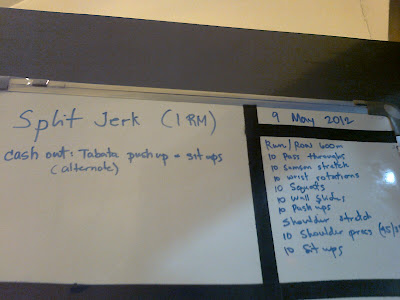 Split Jerk (1 RM)
cash out: Tabata push up + sit ups
(alternate)
9 May 2012
Run/Row 600m
10 Pass throughs
10 Samson stretch
10 wrist rotations
10 Squats
10 Wall Slides
10 Push ups
Shoulder stretch
10 Shoulder press (45/3
10 Sit ups